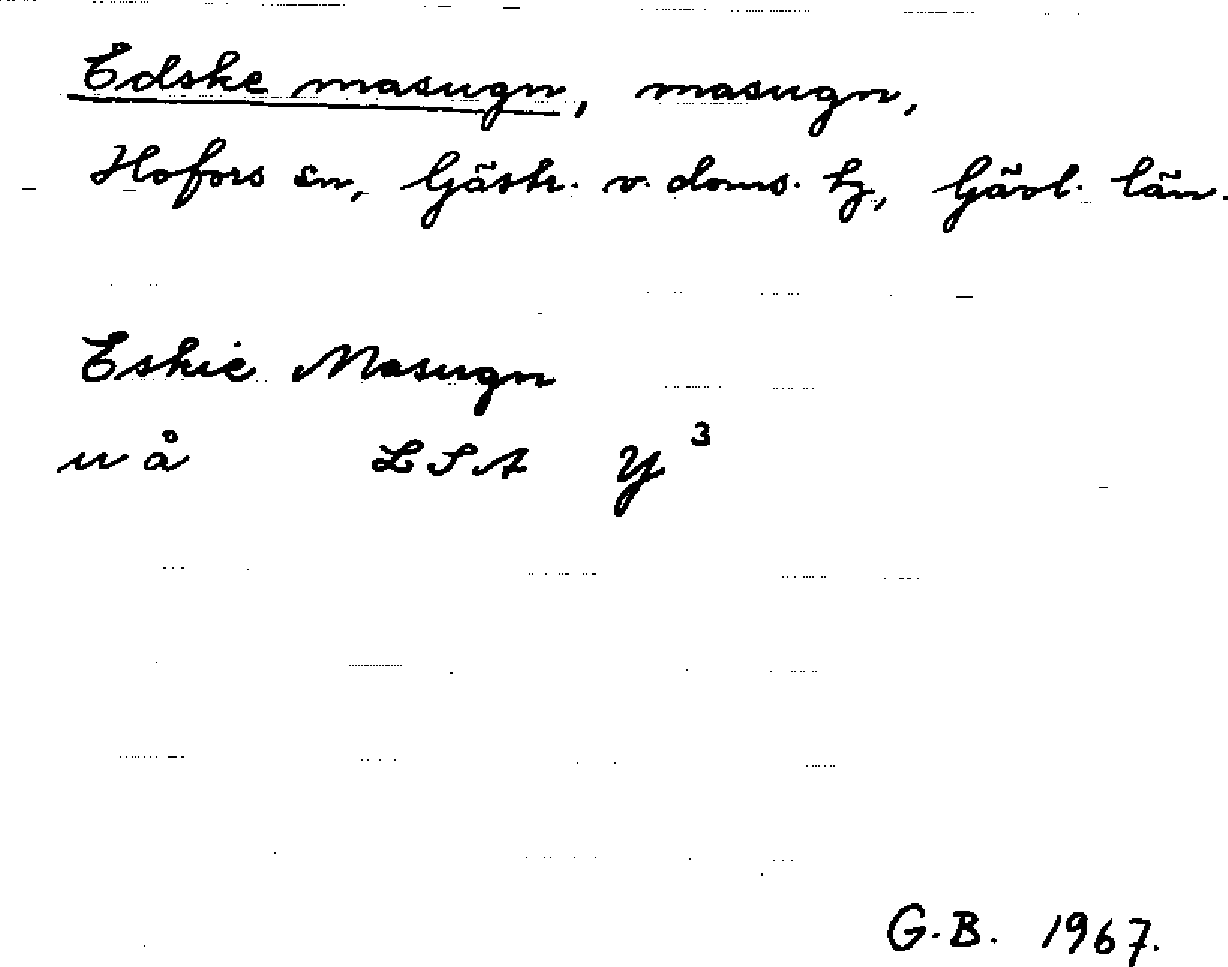 Edske masugn, masugn,
Hofors sn, Gästr. v. doms. hz, Gävl. län.
Eskie Masugn
u å LSA Y³
G.B. 1967.